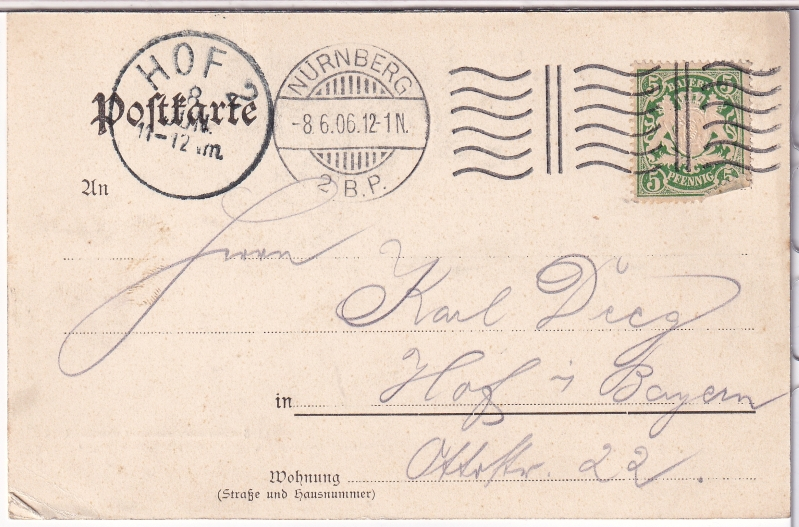 HOF 2
8
JUN.
11-12Vm.
Postkarte
NÜRNBERG
-8.6.06.12-1N.
2 B.P.
5 BAYERN 5
5 PFENNIG 5
An
Herrn
Karl Dieg
in Hof i Bayern
Wohnung Ottostr. 22.
(Straße und Hausnummer)